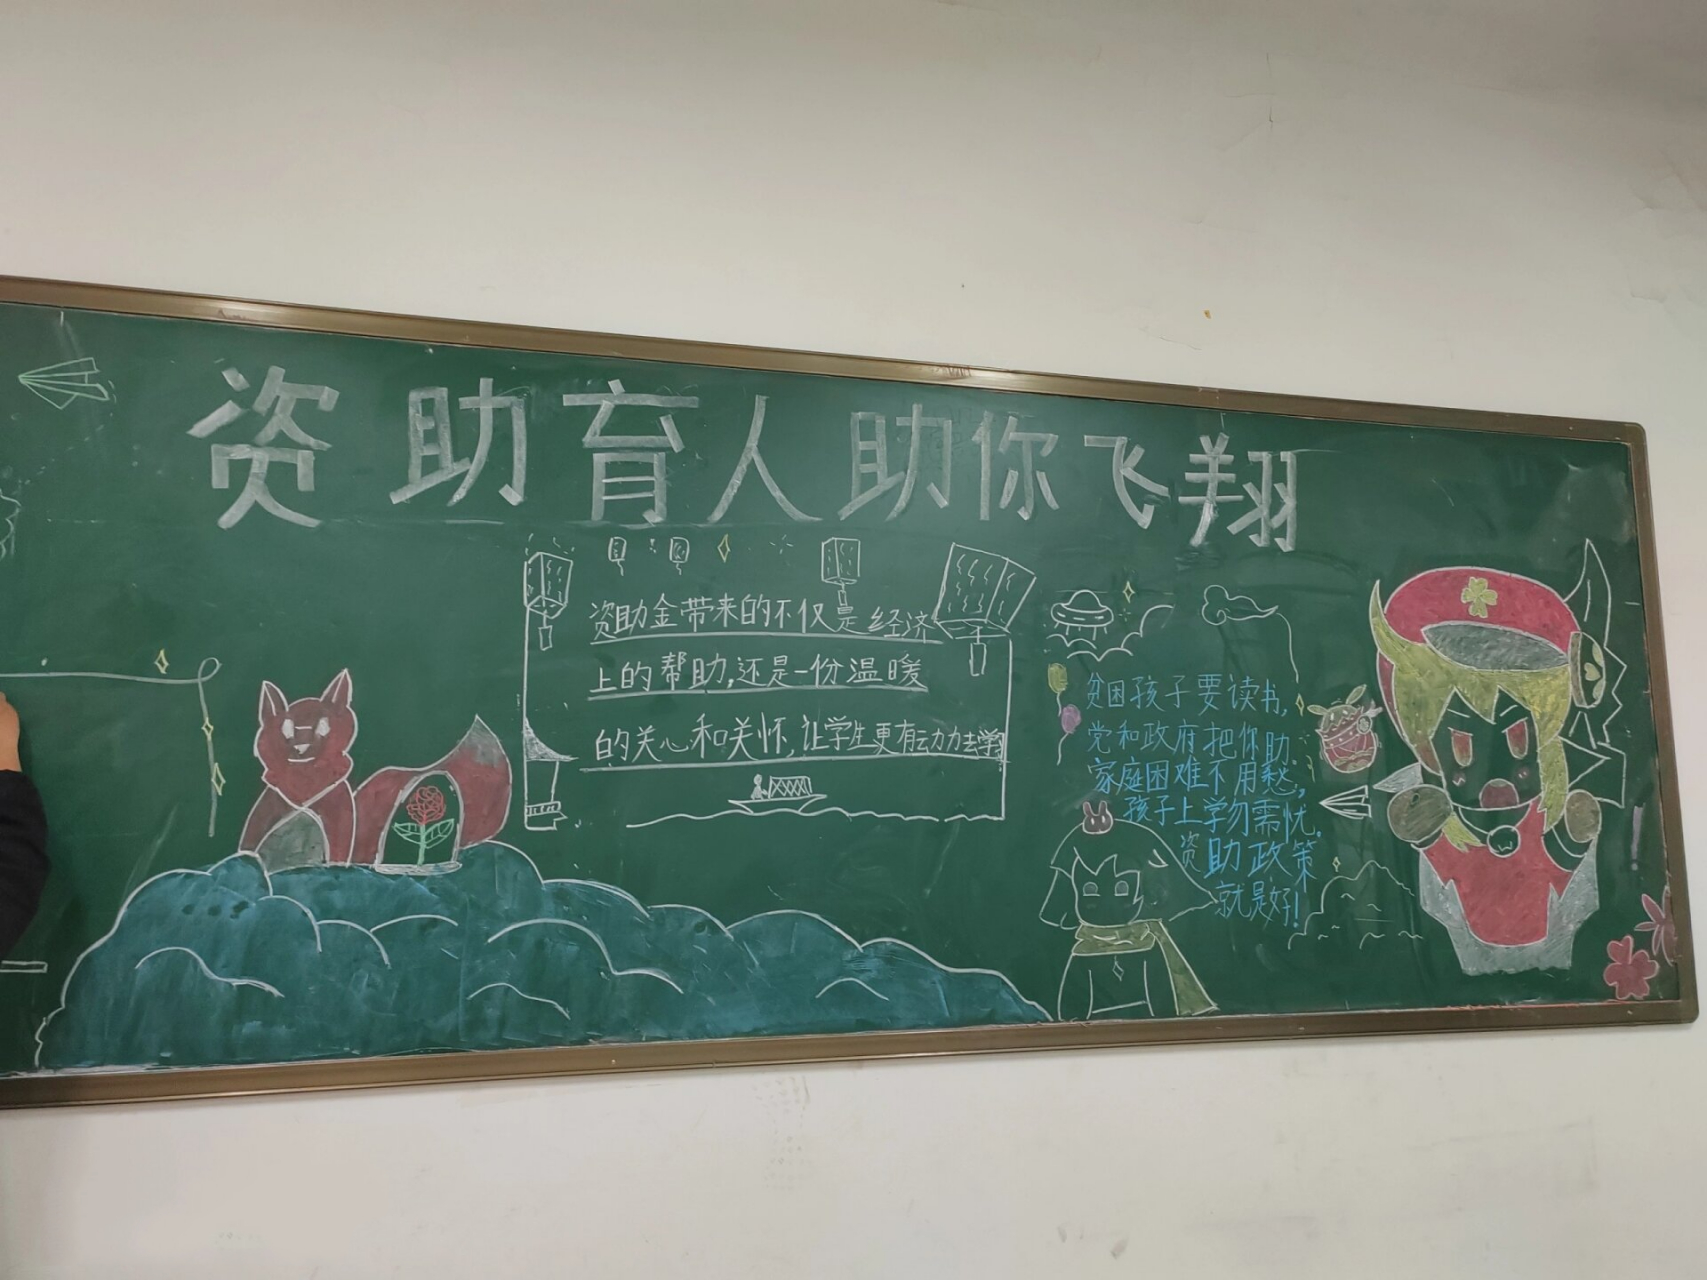 资助育人助你飞翔
资助金带来的不仅是经济
上的帮助,还是一份温暖
的关心和关怀,让学生更有动力去学
贫困孩子要读书,
党和政府把你助.
家庭困难不用愁,
孩子上学勿需忧.
资助政策
就是好!